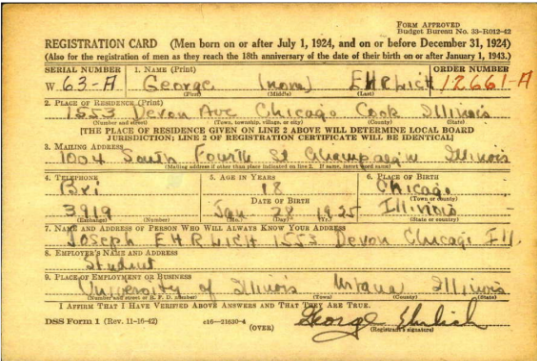 FORM APPROVED
Budget Bureau No. 33-R012-42
REGISTRATION CARD (Men born on or after July 1, 1924, and on or before December 31, 1924)
(Also for the registration of men as they reach the 18th anniversary of the date of their birth on or after January 1, 1943.)
SERIAL NUMBER 1. NAME (Print) ORDER NUMBER
W 63-A George (none) EHRLICH 12661-A
(First) (Middle) (Last)
2. PLACE OF RESIDENCE (Print)
1553 Devon Ave Chicago Cook Illinois
(Number and street) (Town, township, village, or city) (County) (State)
[THE PLACE OF RESIDENCE GIVEN ON LINE 2 ABOVE WILL DETERMINE LOCAL BOARD
JURISDICTION; LINE 2 OF REGISTRATION CERTIFICATE WILL BE IDENTICAL]
3. MAILING ADDRESS
1004 South Fourth St Champaign Illinois
[Mailing address if other than place indicated on line 2. If same, insert word same]
4. TELEPHONE 5. AGE IN YEARS 6. PLACE OF BIRTH
Bri 18 Chicago
DATE OF BIRTH (Town or county)
3919 Jan 28 1925 Illinois
(Exchange) (Number) (Mo.) (Day) (Yr.) (State or country)
7. NAME AND ADDRESS OF PERSON WHO WILL ALWAYS KNOW YOUR ADDRESS
Joseph EHRLICH 1553 Devon Chicago Ill.
8. EMPLOYER'S NAME AND ADDRESS
Student
9. PLACE OF EMPLOYMENT OR BUSINESS
University of Illinois Urbana Illinois
(Number and street or R. F. D. number) (Town) (County) (State)
I AFFIRM THAT I HAVE VERIFIED ABOVE ANSWERS AND THAT THEY ARE TRUE.
DSS Form 1 (Rev. 11-16-42) 16—21630-4 George Ehrlich
(OVER) (Registrant's signature)